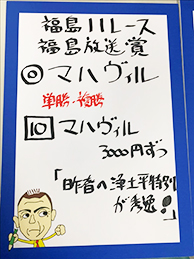 福島11レース
福島放送賞
◎マハヴィル
単勝・複勝
10 マハヴィル
3000円ずつ
「昨春の浄土平特別
が秀逸!」